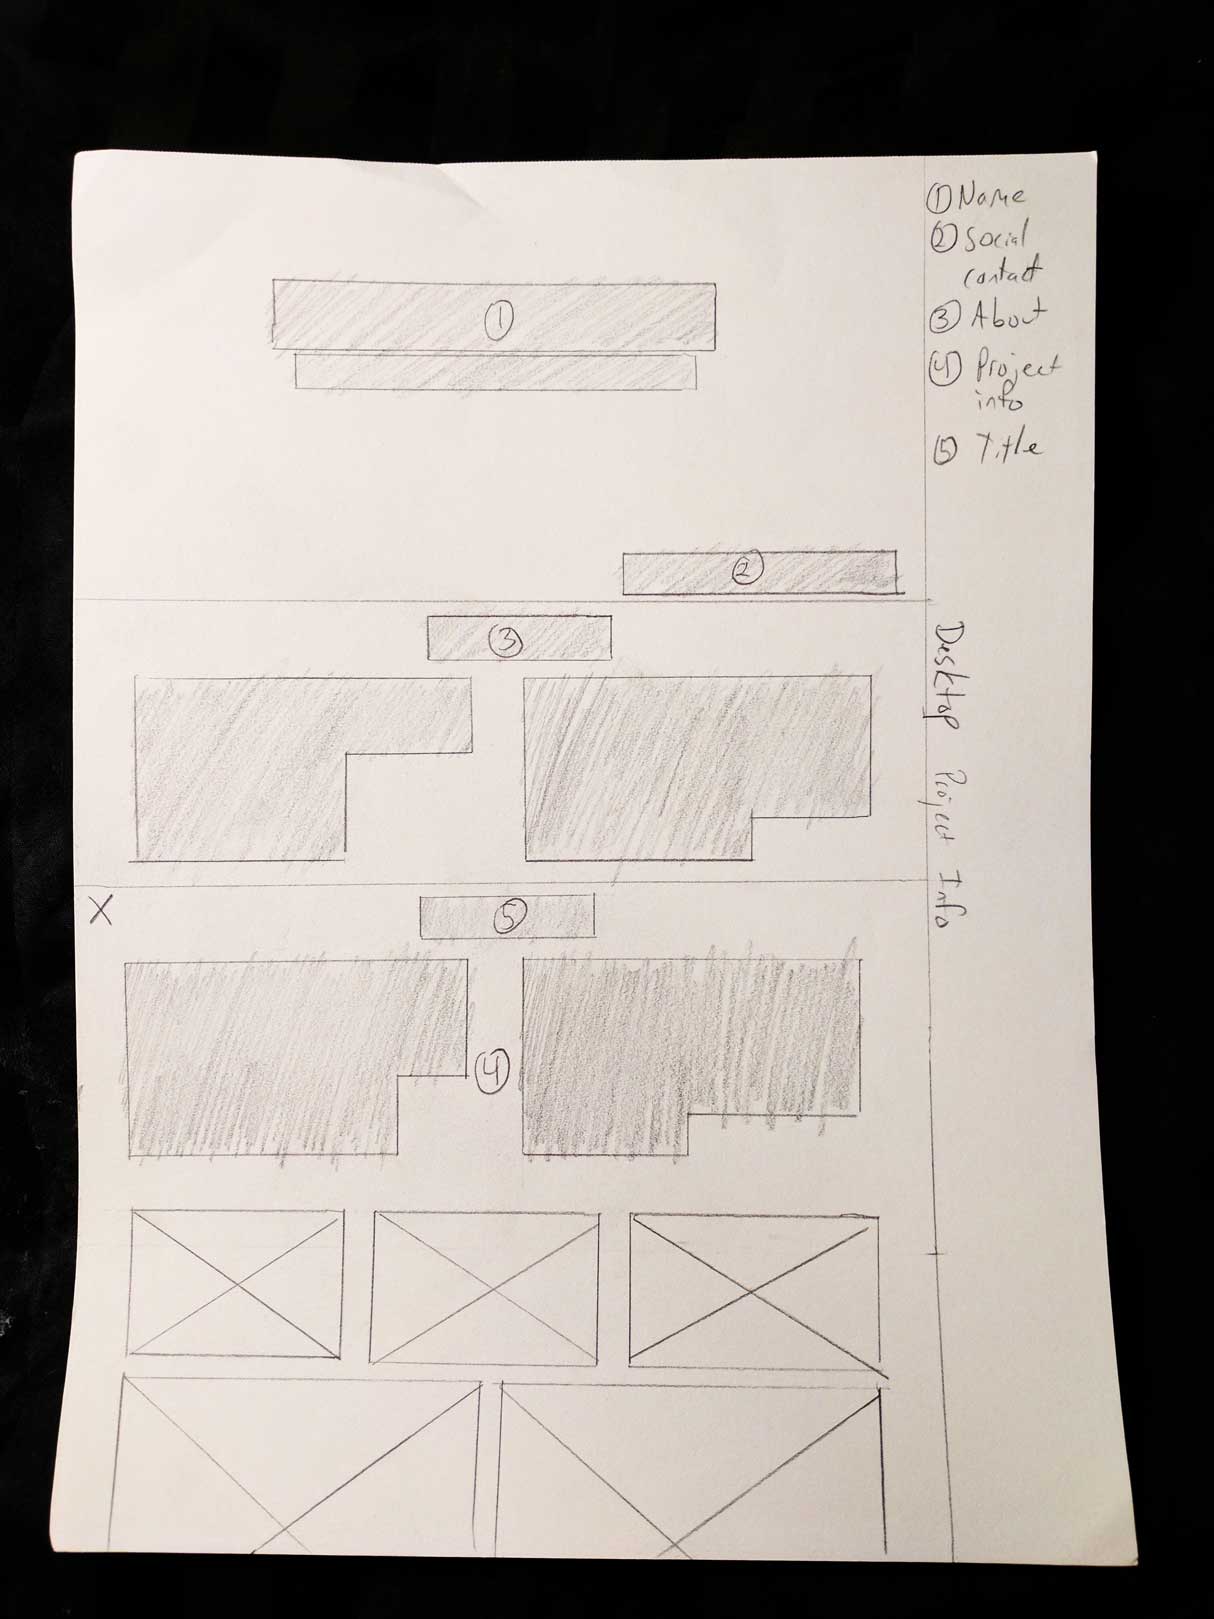 ① Name
② Social
contact
③ About
④ Project
info
⑤ Title
①
②
③
X
⑤
④
Desktop Project Info